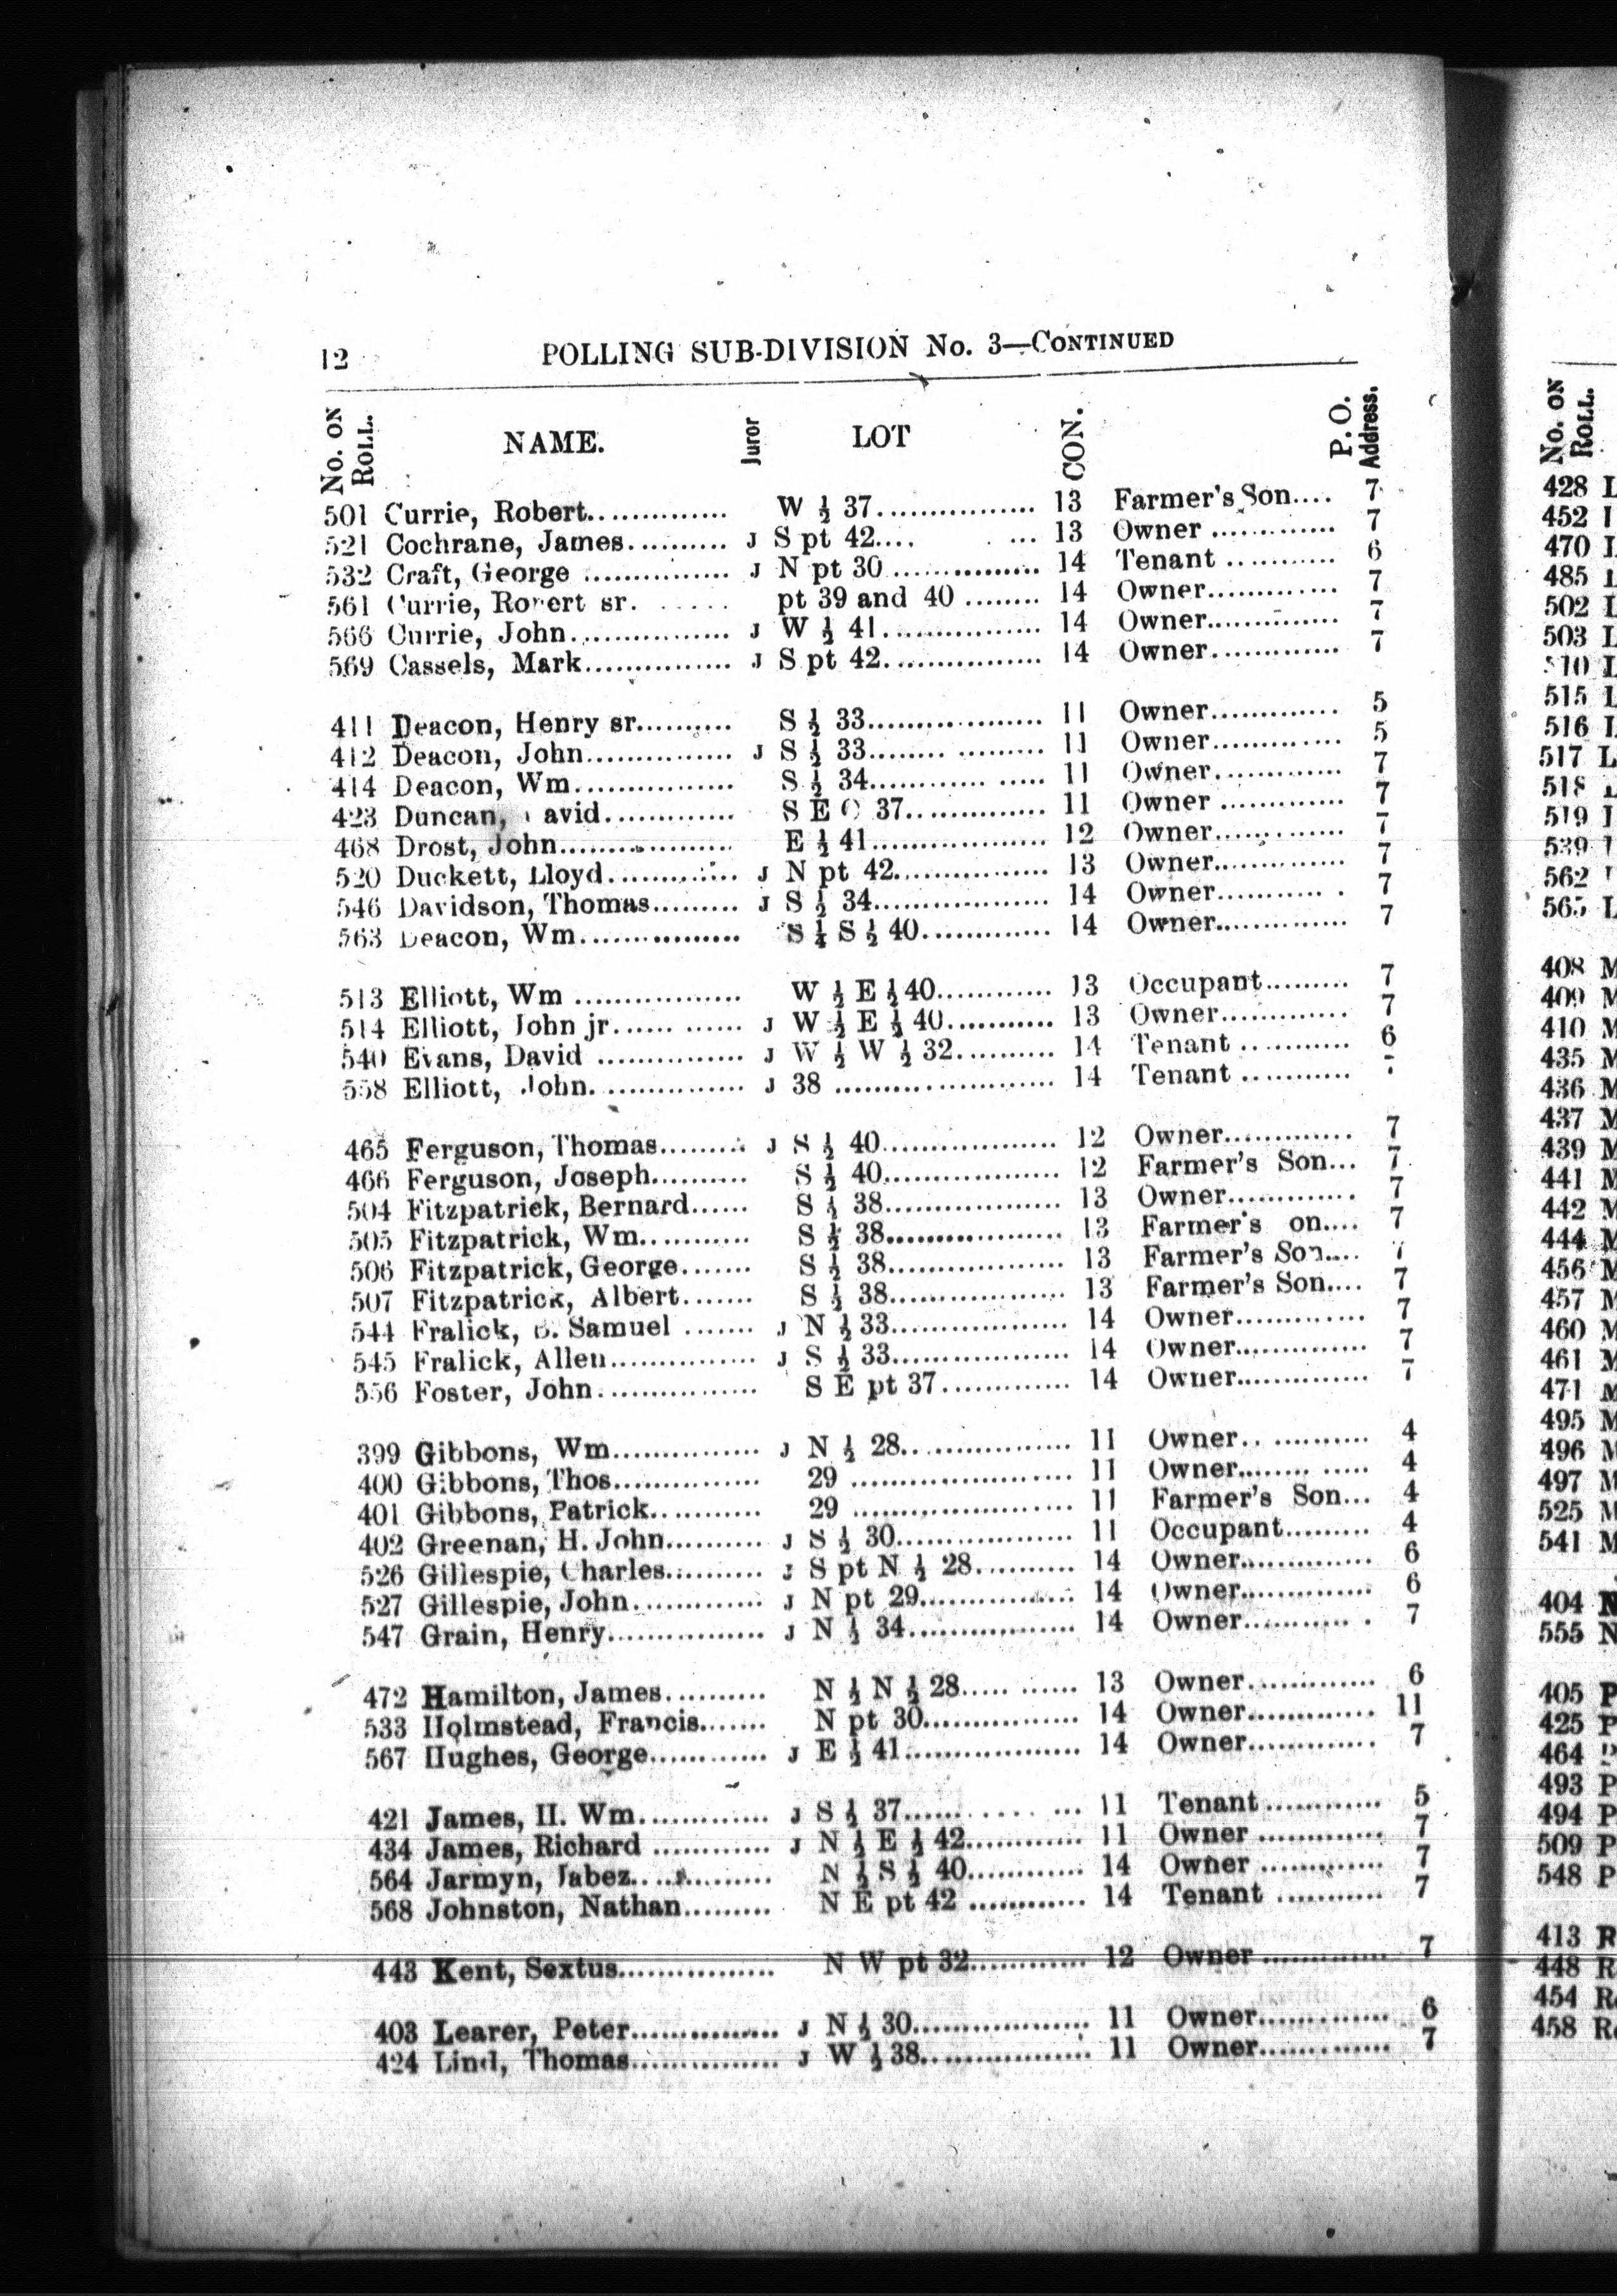 12 POLLING SUB-DIVISION No. 3—CONTINUED
No. ON ROLL. NAME. Juror LOT CON. P. O. Address.
501 Currie, Robert.............. W ½ 37................ 13 Farmer's Son.... 7
521 Cochrane, James.......... J S pt 42.... ... 13 Owner ............. 7
532 Craft, George ............... J N pt 30 ............... 14 Tenant ........... 6
561 Currie, Robert sr. ...... pt 39 and 40 ........ 14 Owner............. 7
566 Currie, John................ J W ½ 41................ 14 Owner............. 7
569 Cassels, Mark............... J S pt 42................ 14 Owner............. 7
411 Deacon, Henry sr.......... S ½ 33.................. 11 Owner............. 5
412 Deacon, John............... J S ½ 33........ ......... 11 Owner............. 5
414 Deacon, Wm................ S ½ 34............ ..... 11 Owner............. 7
423 Duncan, avid............. S E C 37.............. 11 Owner ............. 7
468 Drost, John.................. E ½ 41.................. 12 Owner............. 7
520 Duckett, Lloyd............. J N pt 42................ 13 Owner............. 7
546 Davidson, Thomas......... J S ½ 34.................. 14 Owner............ . 7
563 Deacon, Wm................ S ¼ S ½ 40............. 14 Owner............. 7
513 Elliott, Wm ................. W ½ E ½ 40............ 13 Occupant......... 7
514 Elliott, John jr...... ...... J W ½ E ½ 40........... 13 Owner............. 7
540 Evans, David ............... J W ½ W ½ 32.......... 14 Tenant ........... 6
558 Elliott, John. .............. J 38 ...................... 14 Tenant ...........
465 Ferguson, Thomas......... J S ½ 40.................. 12 Owner............. 7
466 Ferguson, Joseph.......... S ½ 40.................. 12 Farmer's Son... 7
504 Fitzpatrick, Bernard...... S ½ 38.................. 13 Owner............. 7
505 Fitzpatrick, Wm........... S ½ 38.................. 13 Farmer's on.... 7
506 Fitzpatrick, George....... S ½ 38.................. 13 Farmer's Son.... 7
507 Fitzpatrick, Albert....... S ½ 38.................. 13 Farmer's Son.... 7
544 Fralick, B. Samuel ....... J N ½ 33.................. 14 Owner............. 7
545 Fralick, Allen............... J S ½ 33.................. 14 Owner............. 7
556 Foster, John................ S E pt 37............. 14 Owner............. 7
399 Gibbons, Wm............... J N ½ 28................. 11 Owner.. .......... 4
400 Gibbons, Thos............... 29 ...................... 11 Owner........ ..... 4
401 Gibbons, Patrick........... 29 ...................... 11 Farmer's Son... 4
402 Greenan, H. John.......... J S ½ 30.................. 11 Occupant......... 4
526 Gillespie, Charles.......... J S pt N ½ 28.......... 14 Owner............. 6
527 Gillespie, John............. J N pt 29................ 14 Owner............. 6
547 Grain, Henry................ J N ½ 34................. 14 Owner........... . 7
472 Hamilton, James.......... N ½ N ½ 28..... ...... 13 Owner............. 6
533 Holmstead, Francis....... N pt 30................ 14 Owner............. 11
567 Hughes, George............ J E ½ 41.................. 14 Owner............. 7
421 James, H. Wm............. J S ½ 37...... .... ... 11 Tenant............ 5
434 James, Richard ............ J N ½ E ½ 42............ 11 Owner ............. 7
564 Jarmyn, Jabez.............. N ½ S ½ 40............ 14 Owner ............. 7
568 Johnston, Nathan......... N E pt 42 ............ 14 Tenant ........... 7
443 Kent, Sextus................ N W pt 32............ 12 Owner ............. 7
403 Learer, Peter............... J N ½ 30.................. 11 Owner............. 6
424 Lind, Thomas............... J W ½ 38................. 11 Owner............. 7
No. ON ROLL.
428 L
452
470
485
502
503 L
510 L
515 L
516
517 L
518
519
539
562
565 L
408 M
409 M
410 M
435 M
436 M
437 M
439 M
441 M
442 M
444 M
456 M
457 M
460 M
461 M
471 M
495 M
496 M
497 M
525 M
541 M
404 N
555 N
405 P
425 P
464
493 P
494 P
509 P
548 P
413 R
448 R
454 R
458 R